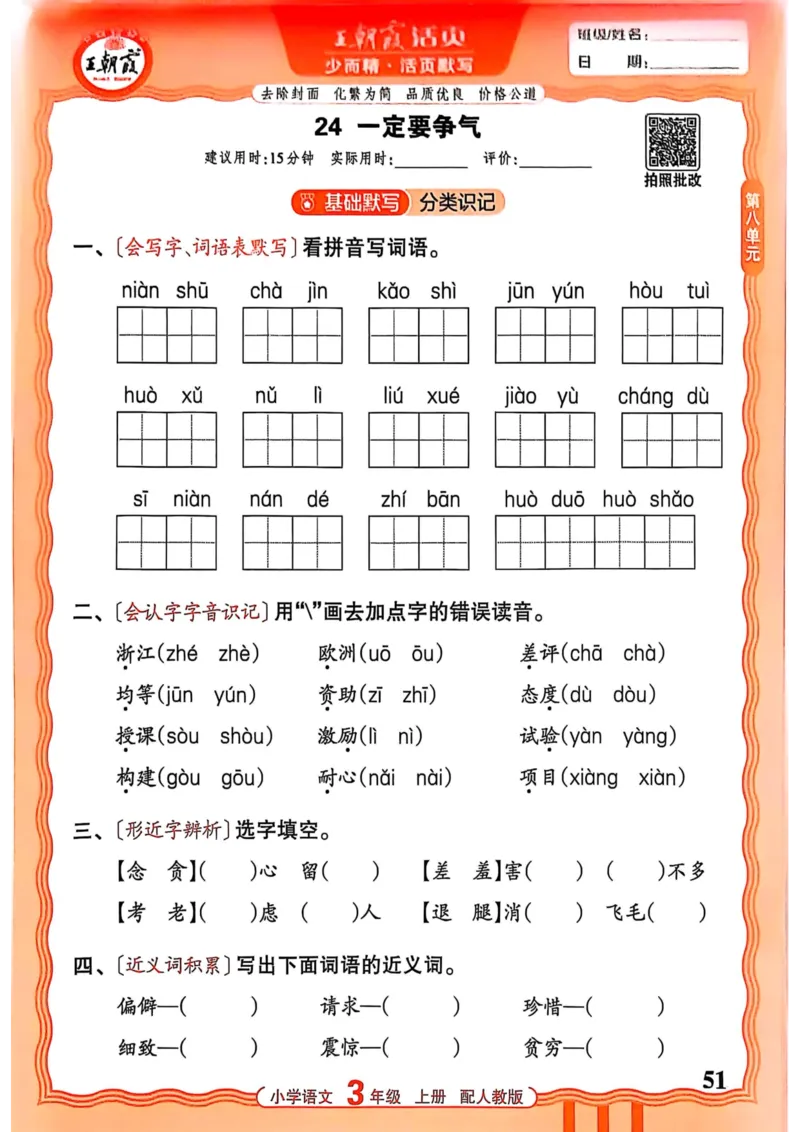 王朝霞
王朝霞 活页
少而精·活页默写
班级/姓名:
日 期:
去除封面 化繁为简 品质优良 价格公道
24 一定要争气
建议用时:15分钟 实际用时: 评价:
拍照批改
基础默写 分类识记
第八单元
一、〔会写字、词语表默写〕看拼音写词语。
niàn shū chà jìn kǎo shì jūn yún hòu tuì
huò xǔ nǔ lì liú xué jiào yù cháng dù
sī niàn nán dé zhí bān huò duō huò shǎo
二、〔会认字字音识记〕用“\”画去加点字的错误读音。
浙江(zhé zhè) 欧洲(uō ōu) 差评(chā chà)
均等(jūn yún) 资助(zī zhī) 态度(dù dòu)
授课(sòu shòu) 激励(lì nì) 试验(yàn yàng)
构建(gòu gōu) 耐心(nǎi nài) 项目(xiàng xiàn)
三、〔形近字辨析〕选字填空。
【念 贪】( )心 留( ) 【差 羞】害( ) ( )不多
【考 老】( )虑 ( )人 【退 腿】消( ) 飞毛( )
四、〔近义词积累〕写出下面词语的近义词。
偏僻—( ) 请求—( ) 珍惜—( )
细致—( ) 震惊—( ) 贫穷—( )
51
小学语文 3年级 上册 配人教版